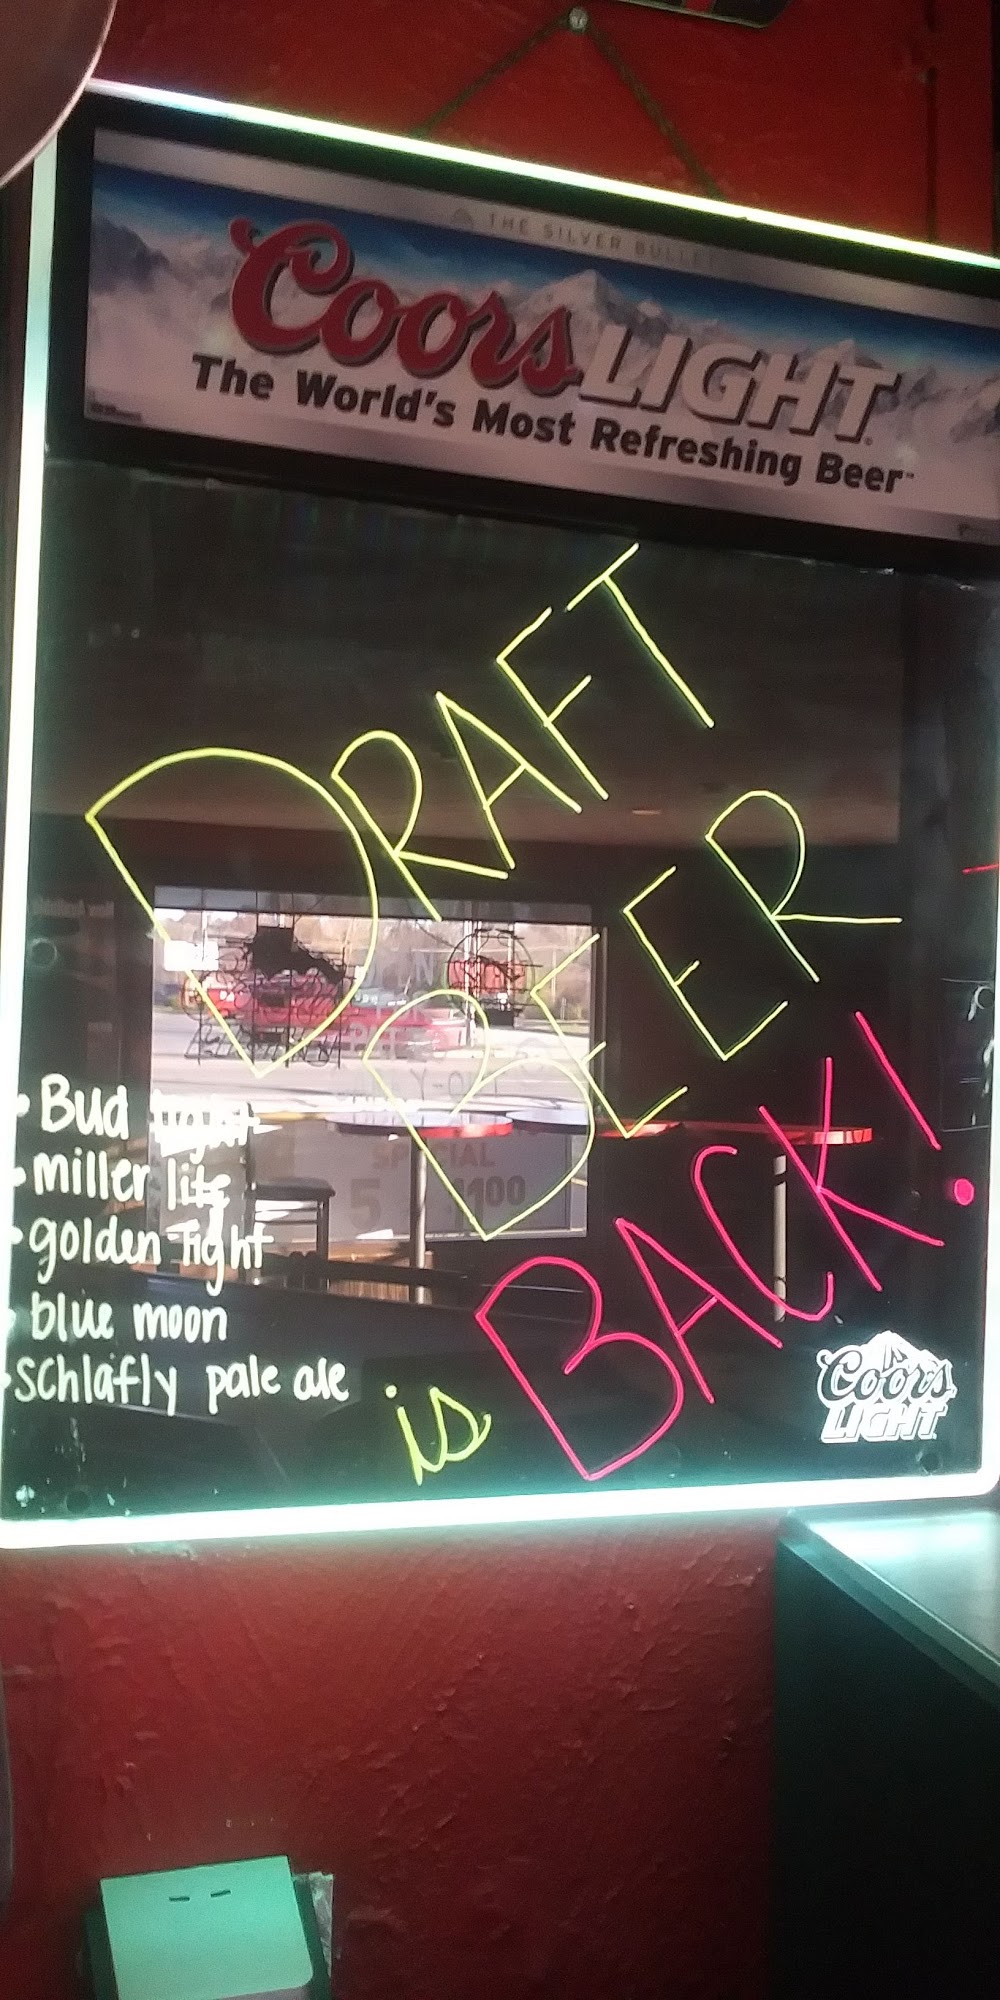 THE SILVER BULLET
Coors LIGHT
The World's Most Refreshing Beer™
DRAFT
BEER
is BACK!
• Bud light
• miller lite
• golden light
• blue moon
• schlafly pale ale
Coors
LIGHT
SPECIAL